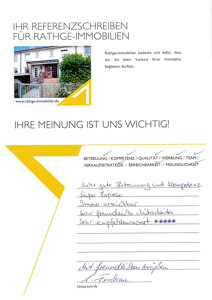 IHR REFERENZSCHREIBEN
FÜR RATHGE-IMMOBILIEN
Rathge-Immobilien bedankt sich dafür, dass
wir Sie beim Verkauf Ihrer Immobilie
begleiten durften.
www.rathge-immobilien.de
IHRE MEINUNG IST UNS WICHTIG!
BETREUUNG / KOMPETENZ / QUALITÄT / WERBUNG / TEAM
VERKAUFSSTRATEGIE / ERREICHBARKEIT / FREUNDLICHKEIT
Sehr gute Betreuung und Kompetenz
Super Expose
Immer erreichbar
Sehr freundliche
Sehr empfehlenswert *****
Mit freundlichen Grüßen
Unterschrift